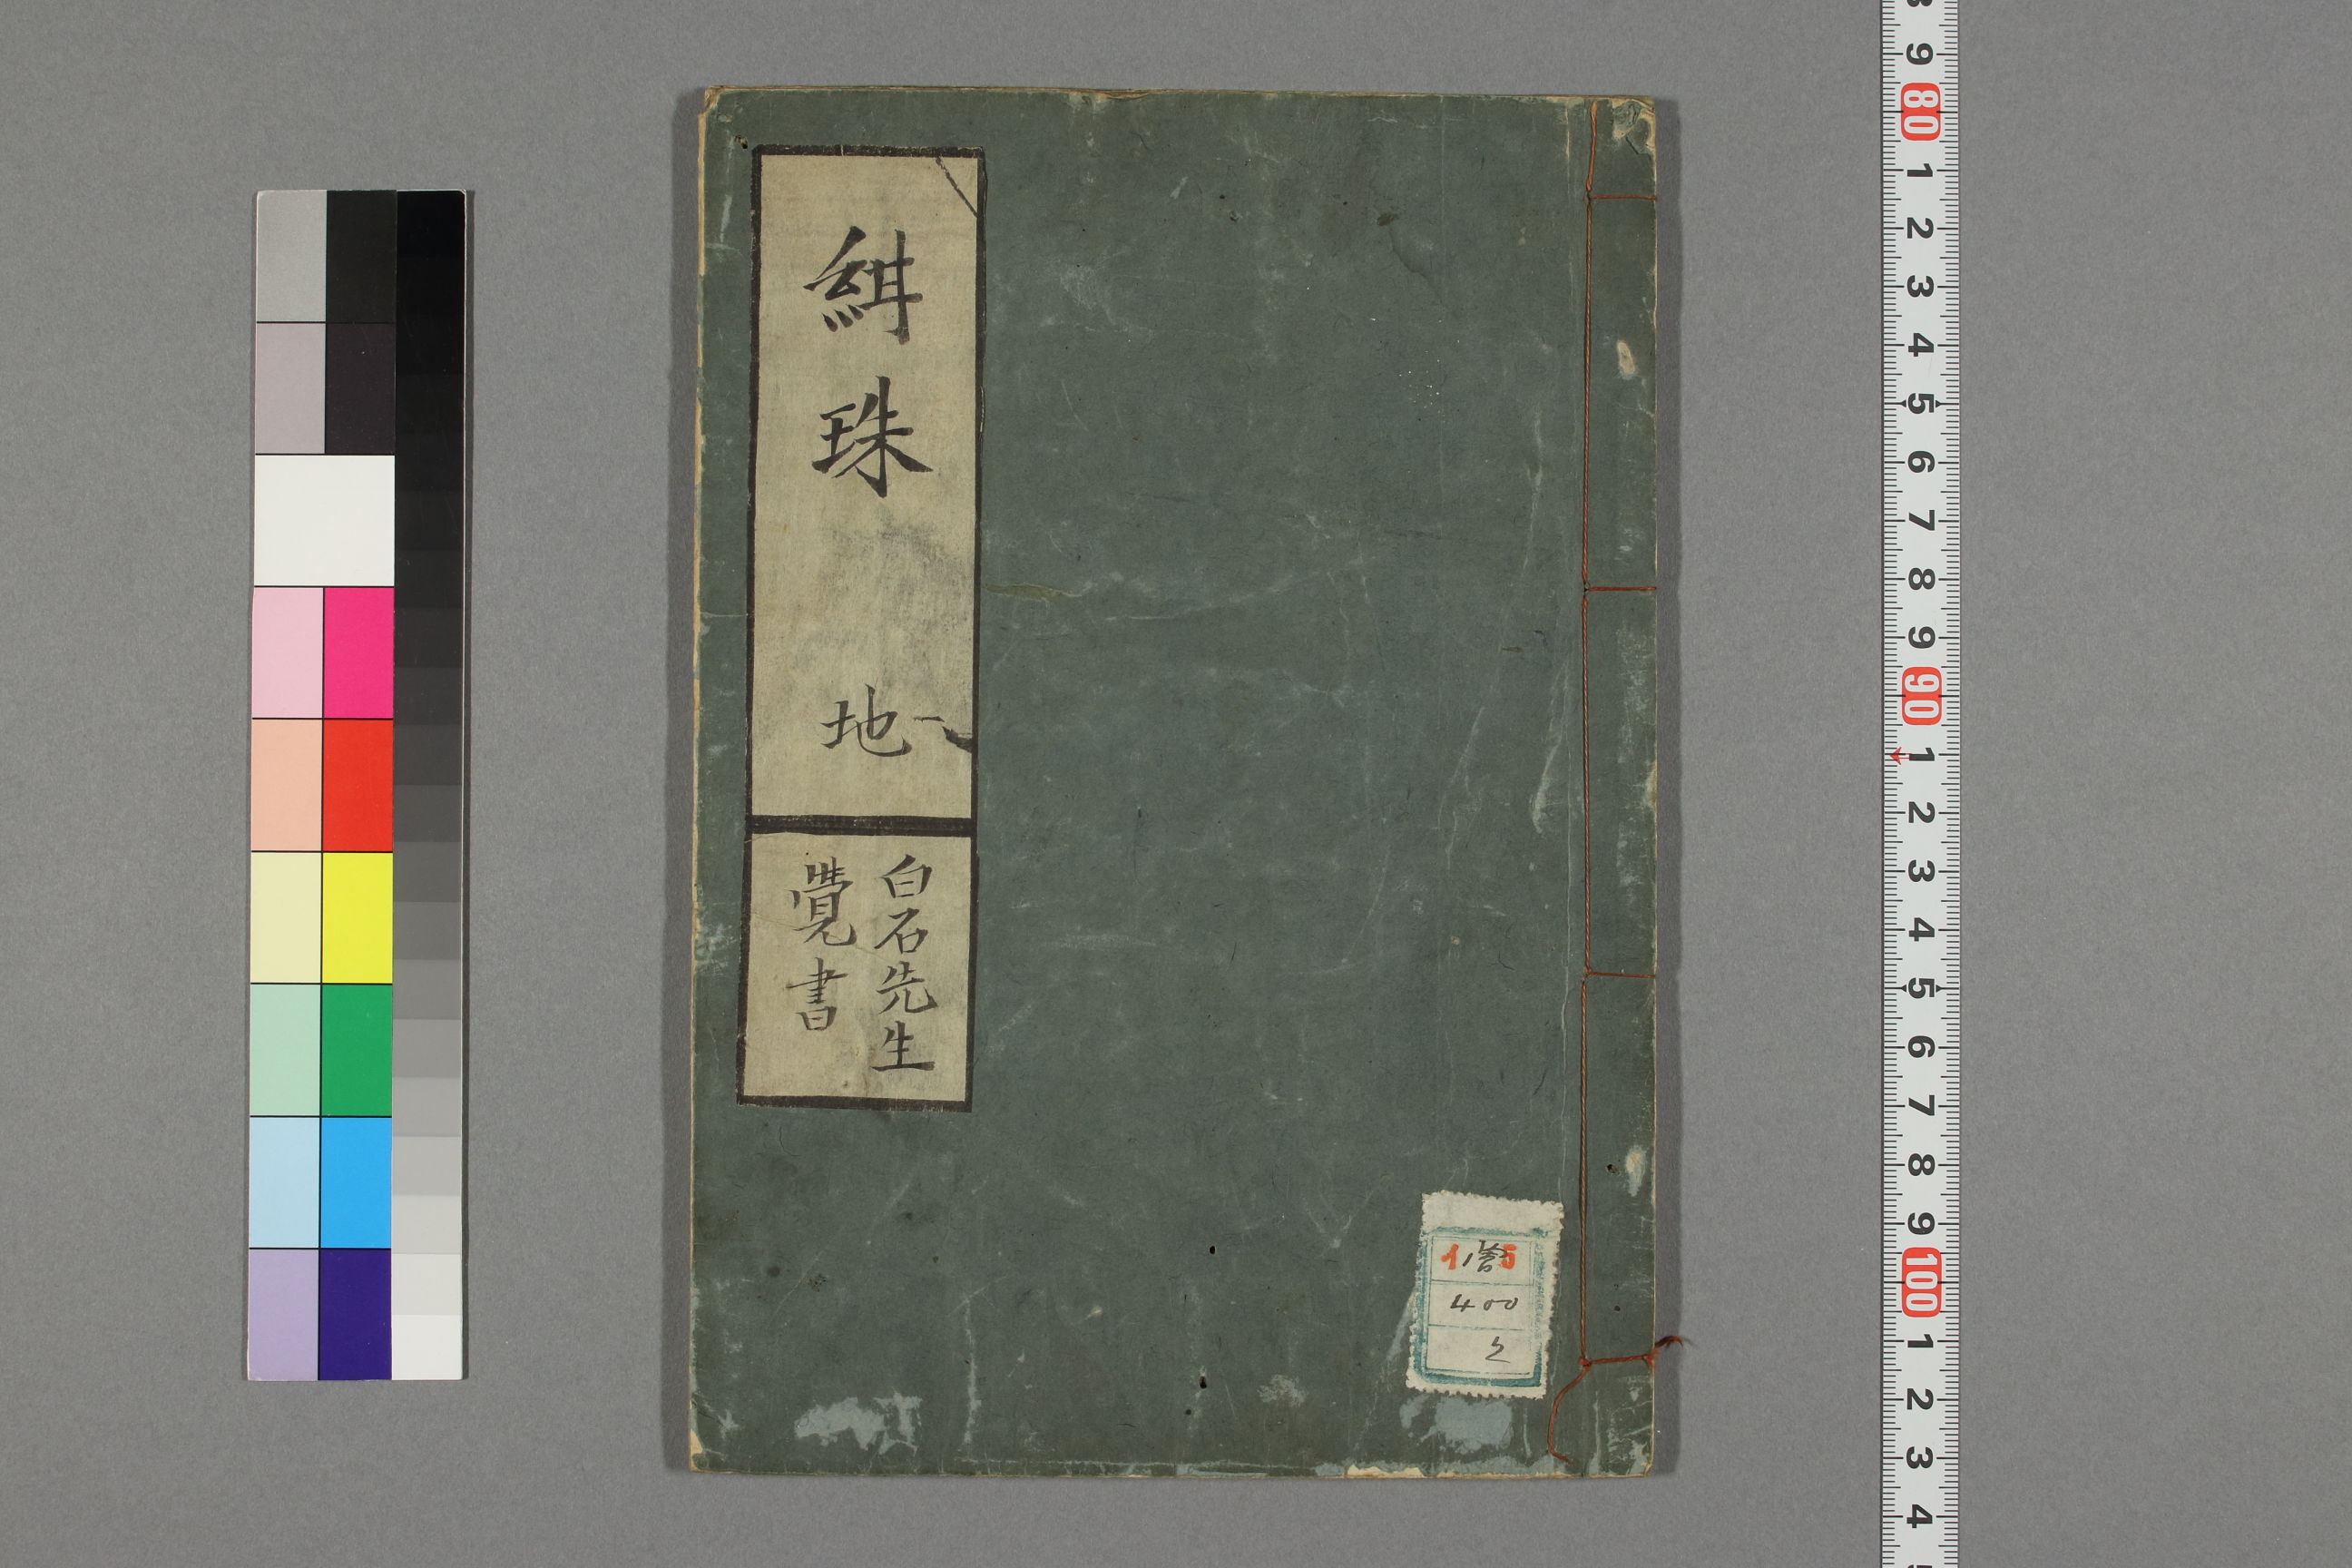 紺珠
地
白石先生
覺書
400
2
9
80
1
2
3
4
5
6
7
8
9
90
1
2
3
4
5
6
7
8
9
100
1
2
3
4